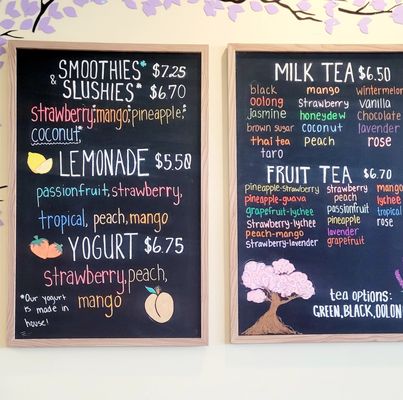 SMOOTHIES* $7.25
& SLUSHIES* $6.70
strawberry,*mango,*pineapple,*
coconut,*
LEMONADE $5.50
passionfruit, strawberry,
tropical, peach, mango
YOGURT $6.75
strawberry, peach,
mango
*Our yogurt
is made in
house!
MILK TEA $6.50
black mango wintermelon
oolong strawberry vanilla
jasmine honeydew chocolate
brown sugar coconut lavender
thai tea peach rose
taro
FRUIT TEA $6.70
pineapple-strawberry strawberry mango
pineapple-guava peach lychee
grapefruit-lychee passionfruit tropical
strawberry-lychee pineapple rose
peach-mango lavender
strawberry-lavender grapefruit
tea options:
GREEN, BLACK, OOLON